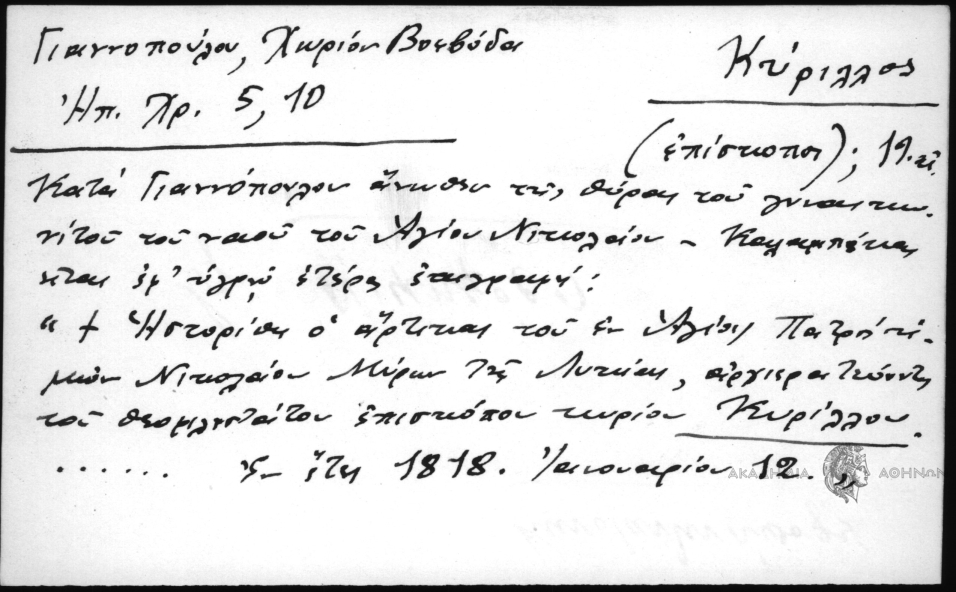 Γιαννοπούλου, Χωρίον Βοεβόδα
Ἠπ. Χρ. 5, 10
Κύριλλος
(ἐπίσκοποι); 19. αἰ.
Κατὰ Γιαννόπουλον ἄνωθεν τῆς θύρας τοῦ γυναικω-
νίτου τοῦ ναοῦ τοῦ Ἁγίου Νικολάου - Καλαμπάκας
κεῖται ἐν ὑγρῷ ἑτέρα ἐπιγραφή:
" + Ἱστορίθη ὁ νάρτικας τοῦ ἐν Ἁγίοις Πατρὸς ἡ-
μῶν Νικολάου Μύρων τῆς Λυκίας, ἀρχιερατεύοντος
τοῦ θεοφιλεστάτου ἐπισκόπου κυρίου Κυρίλλου.
. . . . . . ἐν ἔτει 1818. Ἰαννουαρίου 12. "
ΑΚΑΔΗΜΙΑ ΑΘΗΝΩΝ